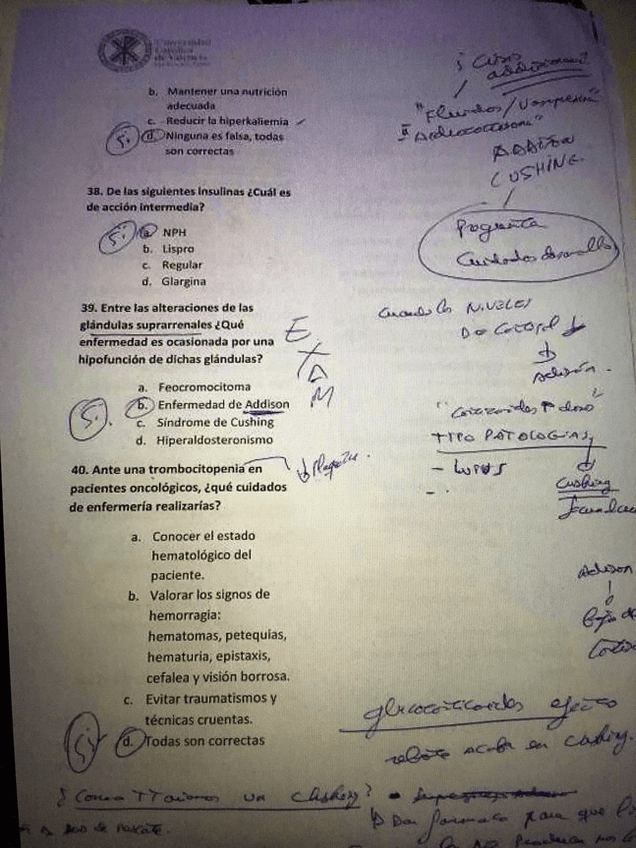 Universidad
Católica
de Valencia
b. Mantener una nutrición
adecuada
c. Reducir la hiperkaliemia
Si d. Ninguna es falsa, todas
son correctas
38. De las siguientes insulinas ¿Cuál es
de acción intermedia?
Si a. NPH
b. Lispro
c. Regular
d. Glargina
39. Entre las alteraciones de las
glándulas suprarrenales ¿Qué
enfermedad es ocasionada por una
hipofunción de dichas glándulas?
EXAM
a. Feocromocitoma
Si b. Enfermedad de Addison
c. Síndrome de Cushing
d. Hiperaldosteronismo
40. Ante una trombocitopenia en
pacientes oncológicos, ¿qué cuidados
de enfermería realizarías?
a. Conocer el estado
hematológico del
paciente.
b. Valorar los signos de
hemorragia:
hematomas, petequias,
hematuria, epistaxis,
cefalea y visión borrosa.
c. Evitar traumatismos y
técnicas cruentas.
Si d. Todas son correctas
¿ Crisis
addisoniana?
"Fluidos/
ADDISON
CUSHING
Pregunta
Cuidados desarrollo
Cuando los NIVELES
De Cortisol ↓
Adison.
dosis"
TIPO PATOLOGIAS
- LUPUS
Cushing
Adison
Bajo de
glucocorticoides efecto
rebote acaba en cushing.
un Cushing?
Dar farmaco para que